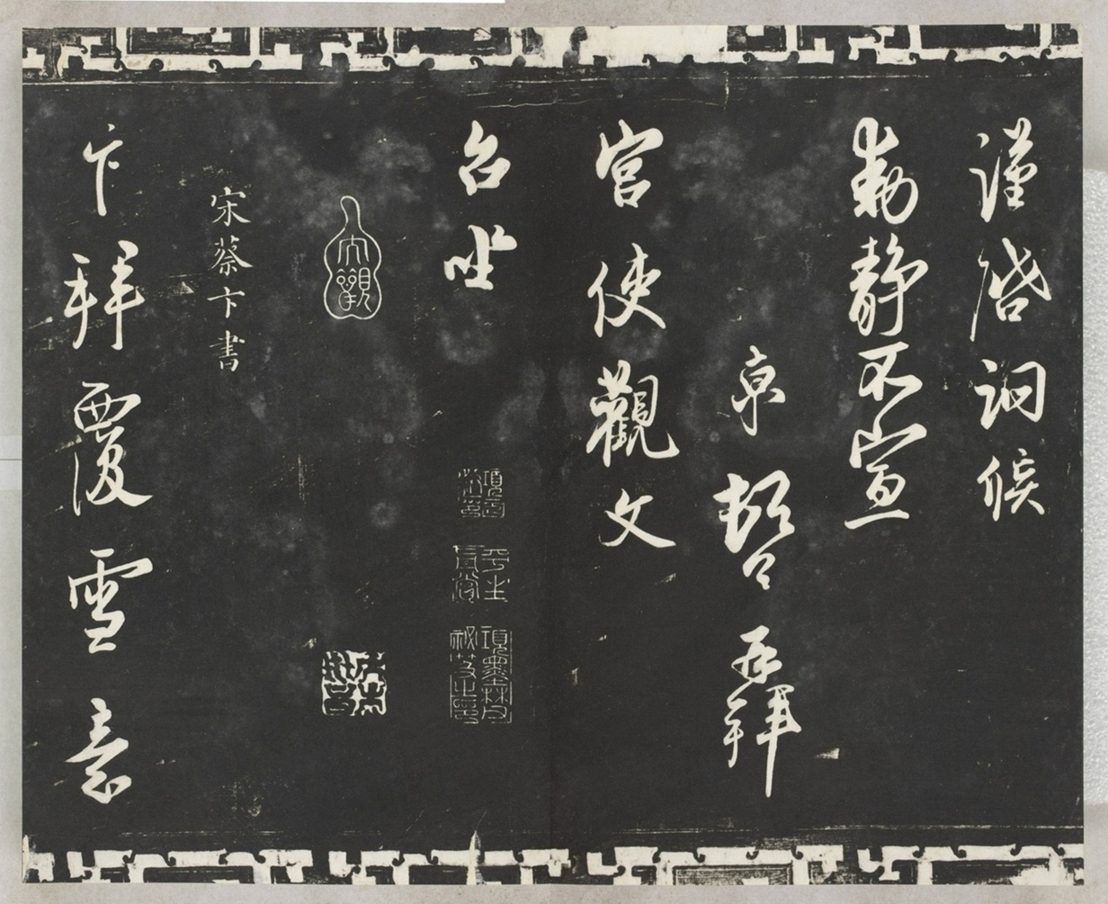 謹啓詞候
動靜不宣
京頓首再拜
宮使觀文
台坐
大觀
宋蔡卞書
卞拜覆雪意